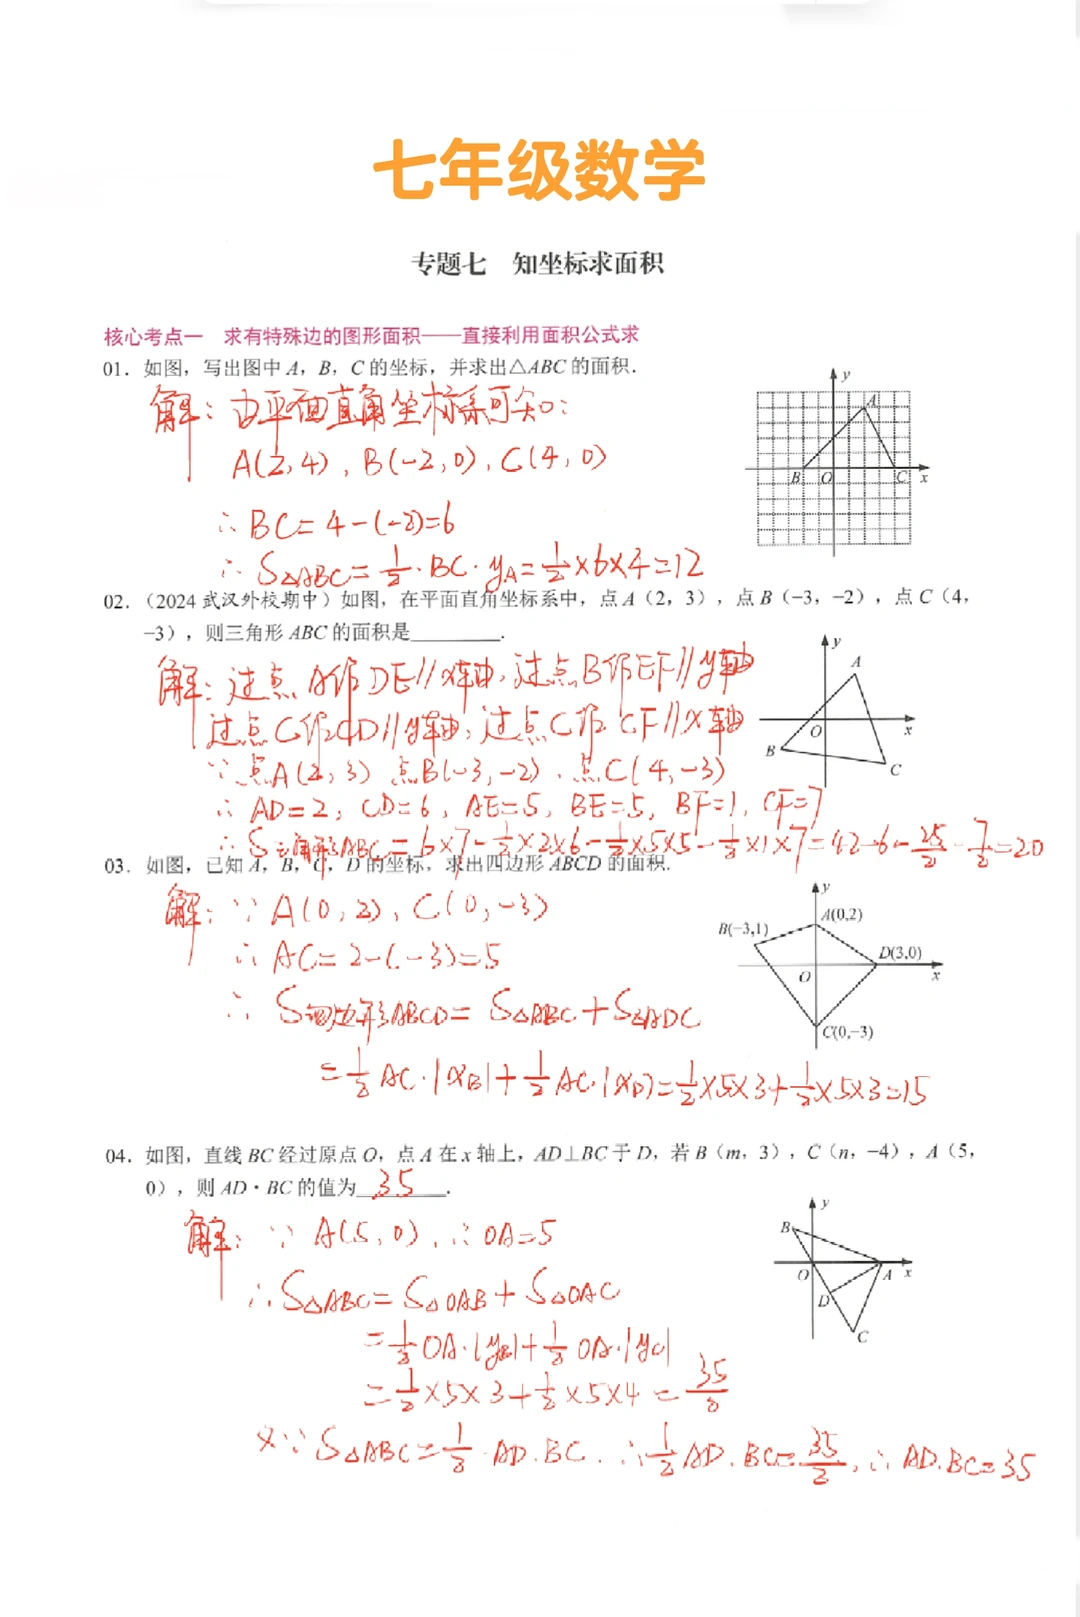 七年级数学
专题七 知坐标求面积
核心考点一 求有特殊边的图形面积——直接利用面积公式求
01. 如图，写出图中 A，B，C 的坐标，并求出△ABC 的面积.
解：由平面直角坐标系可知：
A(2,4)，B(-2,0)，C(4,0)
∴BC=4-(-2)=6
∴S△ABC=1/2·BC·yA=1/2×6×4=12
y
A
B
O
C
x
02.（2024 武汉外校期中）如图，在平面直角坐标系中，点 A（2，3），点 B（-3，-2），点 C（4，
-3），则三角形 ABC 的面积是________.
解：过点A作DE∥x轴，过点B作EF∥y轴
过点C作CD∥y轴，过点C作CF∥x轴
∵点A(2,3) 点B(-3,-2)，点C(4,-3)
∴AD=2，CD=6，AE=5，BE=5，BF=1，CF=7
∴S三角形ABC=6×7-1/2×2×6-1/2×5×5-1/2×1×7=42-6-25/2-7/2=20
y
A
O
x
B
C
03. 如图，已知 A，B，C，D 的坐标，求出四边形 ABCD 的面积.
解：∵A(0,2)，C(0,-3)
∴AC=2-(-3)=5
∴S四边形ABCD=S△ABC+S△ADC
=1/2AC·|xB|+1/2AC·|xD|=1/2×5×3+1/2×5×3=15
y
A(0,2)
B(-3,1)
D(3,0)
O
x
C(0,-3)
04. 如图，直线 BC 经过原点 O，点 A 在 x 轴上，AD⊥BC 于 D，若 B（m，3），C（n，-4），A（5，
0），则 AD·BC 的值为 35 .
解：∵A(5,0)，∴OA=5
∴S△ABC=S△OAB+S△OAC
=1/2OA·|yB|+1/2OA·|yC|
=1/2×5×3+1/2×5×4=35/2
又∵S△ABC=1/2·AD·BC.∴1/2AD·BC=35/2，∴AD·BC=35
y
B
O
A
x
D
C